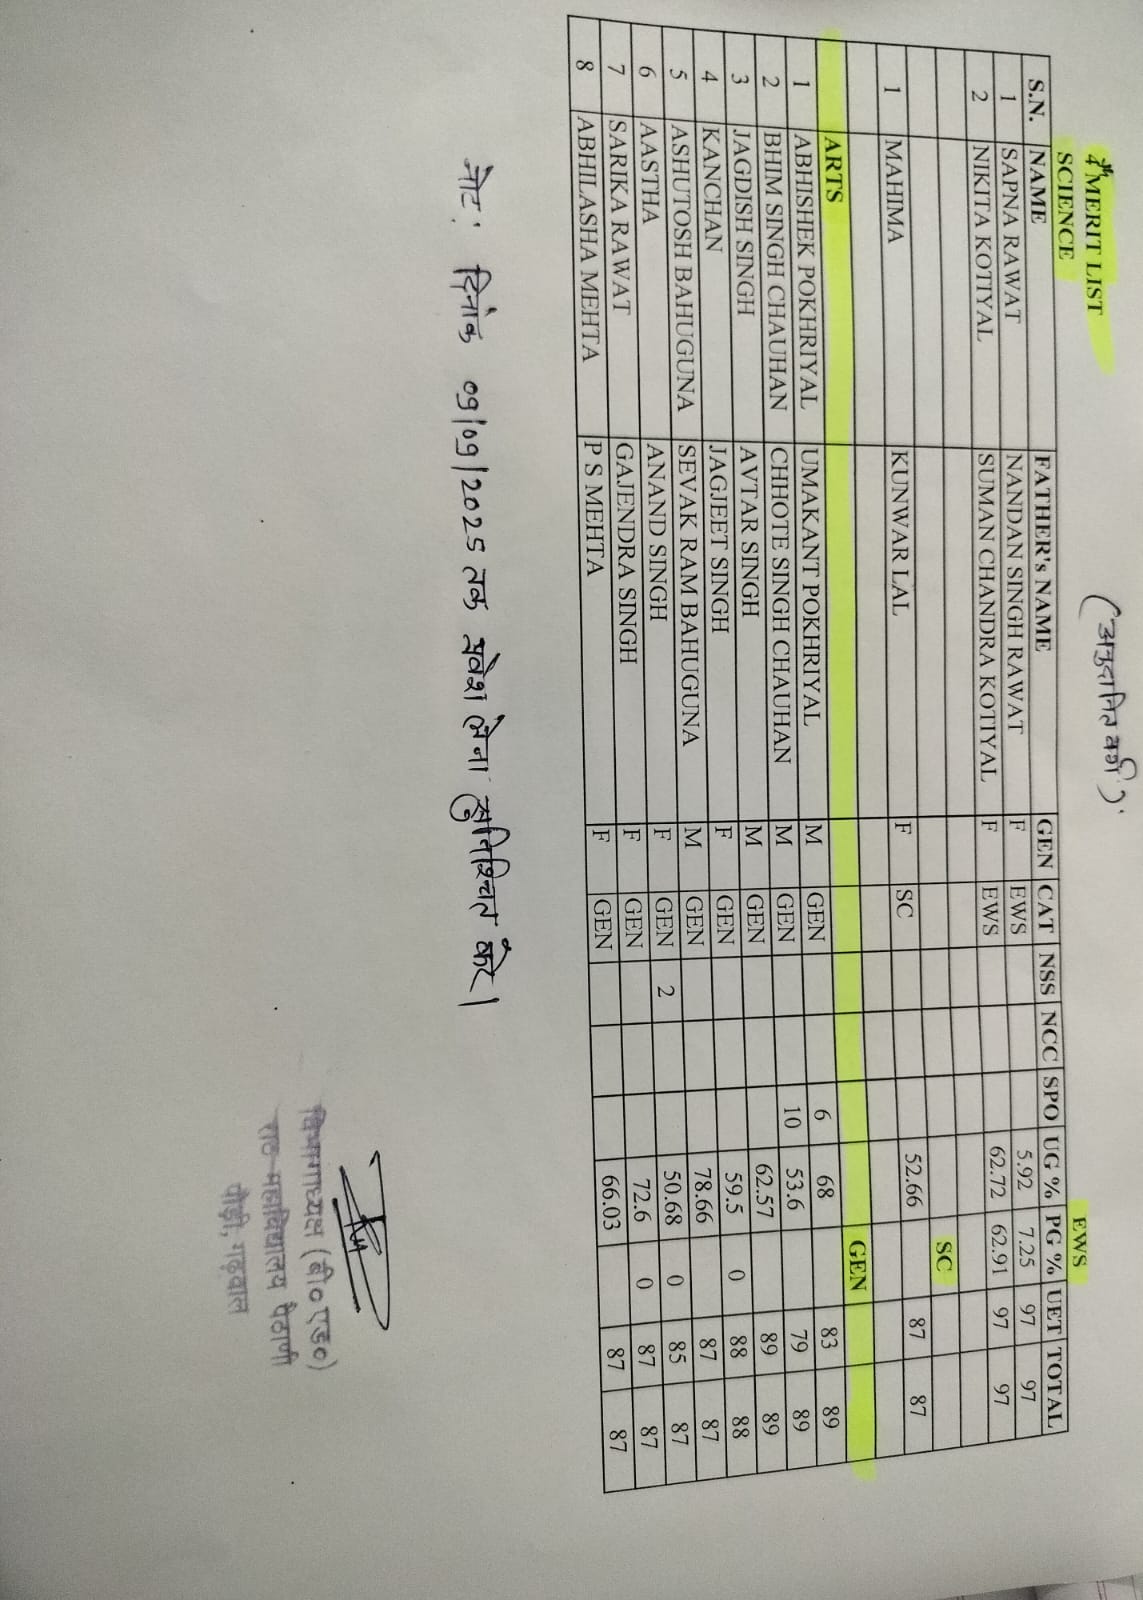 MERIT LIST (अनुदानित वर्ग)
SCIENCE EWS
S.N. NAME FATHER's NAME GEN CAT NSS NCC SPO UG % PG % UET TOTAL
1 SAPNA RAWAT NANDAN SINGH RAWAT F EWS 5.92 7.25 97 97
2 NIKITA KOTIYAL SUMAN CHANDRA KOTIYAL F EWS 62.72 62.91 97 97
SC
1 MAHIMA KUNWAR LAL F SC 52.66 87 87
GEN
ARTS
1 ABHISHEK POKHRIYAL UMAKANT POKHRIYAL M GEN 6 68 83 89
2 BHIM SINGH CHAUHAN CHHOTE SINGH CHAUHAN M GEN 10 53.6 79 89
3 JAGDISH SINGH AVTAR SINGH M GEN 62.57 89 89
4 KANCHAN JAGJEET SINGH F GEN 59.5 0 88 88
5 ASHUTOSH BAHUGUNA SEVAK RAM BAHUGUNA M GEN 78.66 87 87
6 AASTHA ANAND SINGH F GEN 2 50.68 0 85 87
7 SARIKA RAWAT GAJENDRA SINGH F GEN 72.6 0 87 87
8 ABHILASHA MEHTA P S MEHTA F GEN 66.03 87 87
नोट: दिनांक 09/09/2025 तक प्रवेश लेना सुनिश्चित करें।
विभागाध्यक्ष (बी०एड०)
राठ महाविद्यालय पैठाणी
पौड़ी, गढ़वाल